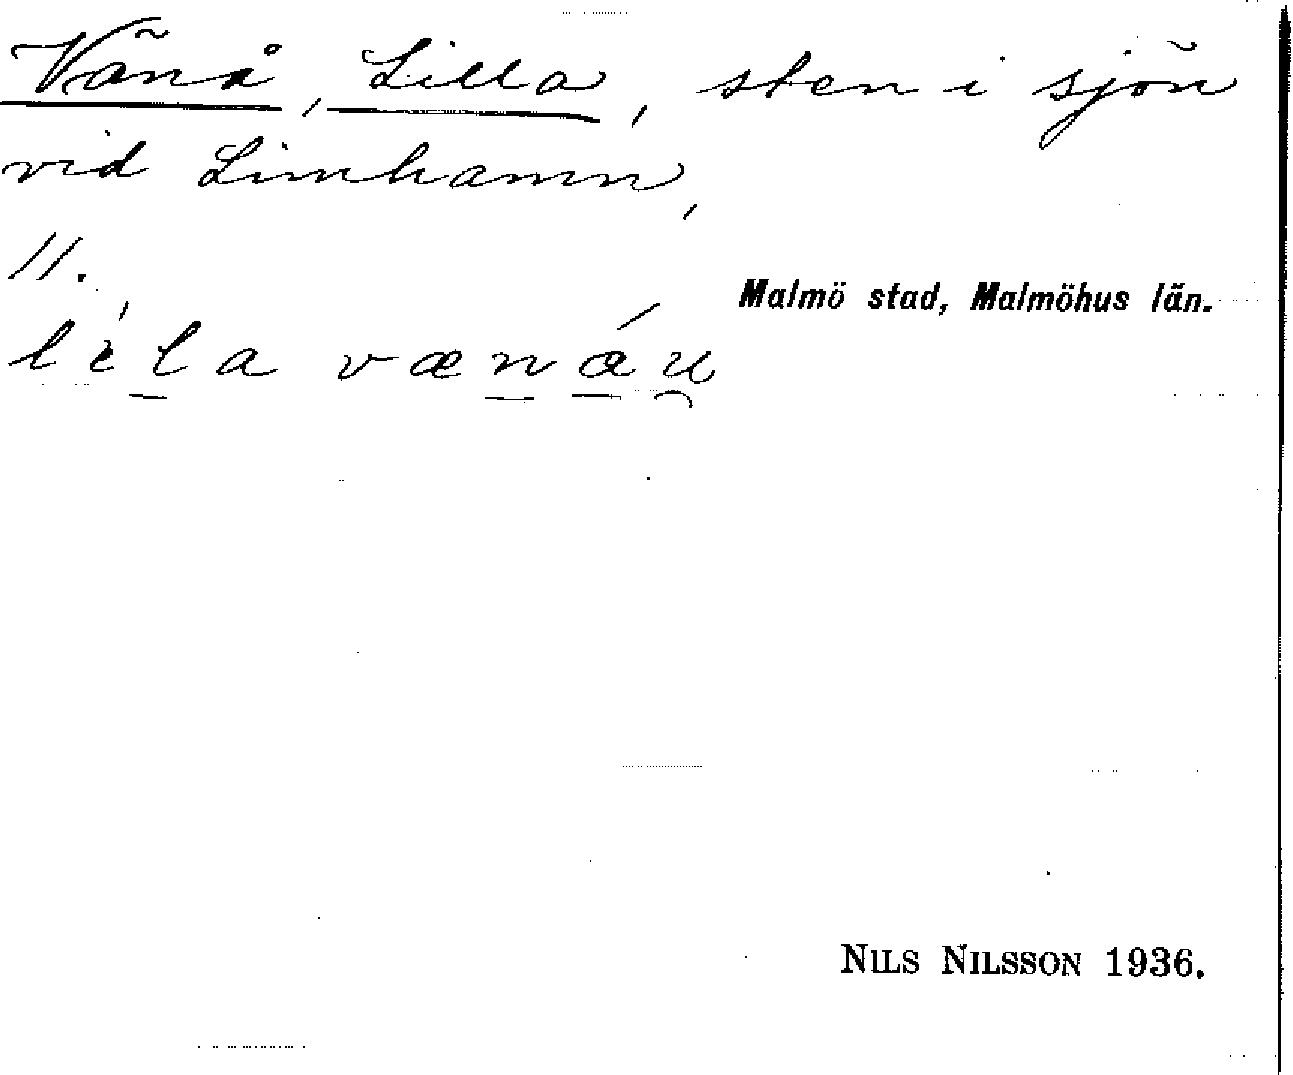 Vänå, Lilla, sten i sjön
vid Limhamn,
11.
Malmö stad, Malmöhus län.
lèla vænǽ̱u̯
NILS NILSSON 1936.